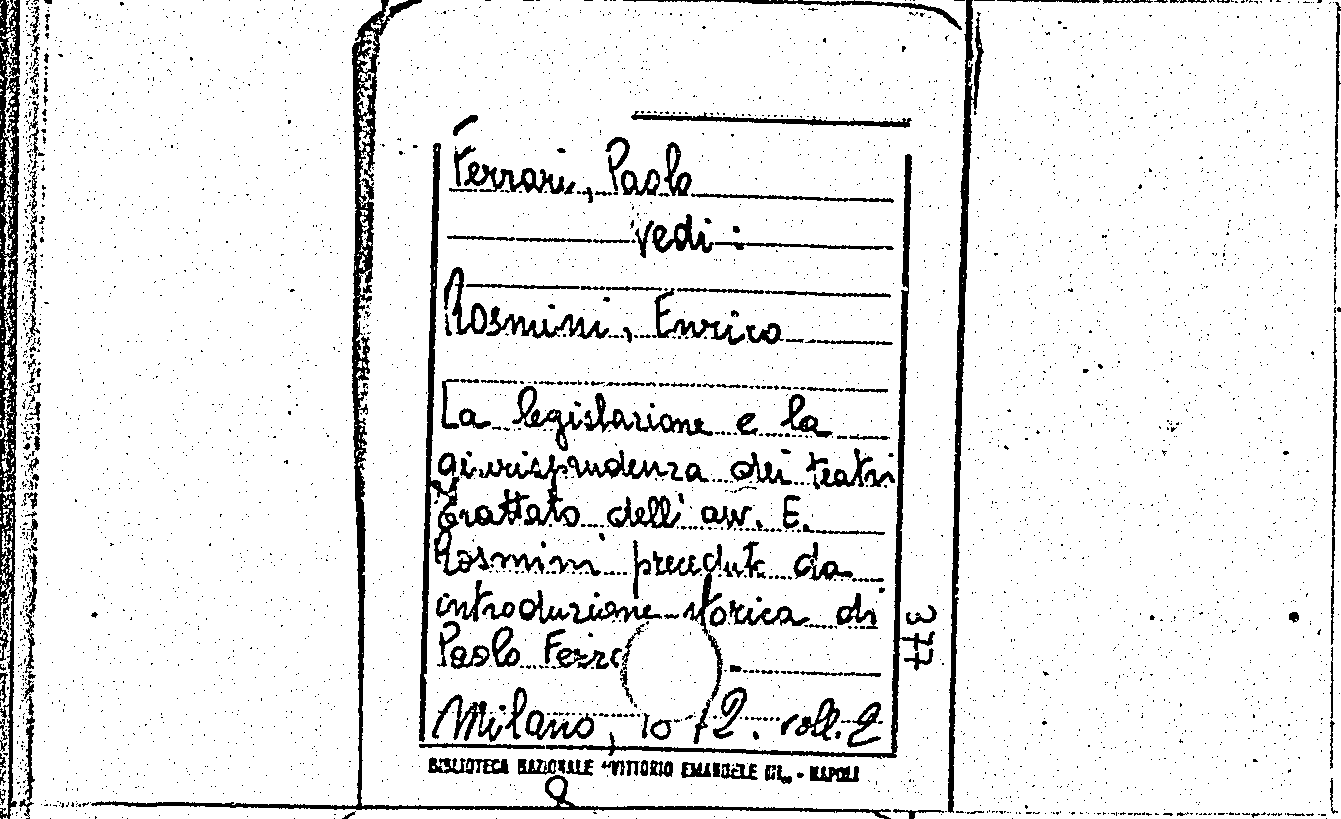 Ferrari, Paolo
vedi:
Rosmini, Enrico
La legislazione e la
giurisprudenza dei teatri
Trattato dell' avv. E.
Rosmini preceduto da
introduzione storica di
Paolo Ferra
Milano, voll. 2
377
BIBLIOTECA NAZIONALE "VITTORIO EMANUELE III„ - NAPOLI